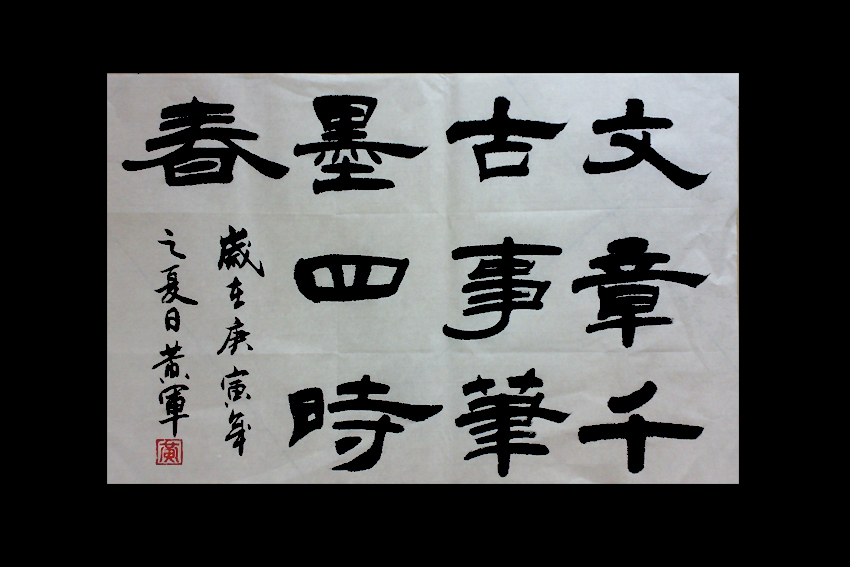 文章千
古事筆
墨四時
春
歲在庚寅年
之夏日黄軍
黄